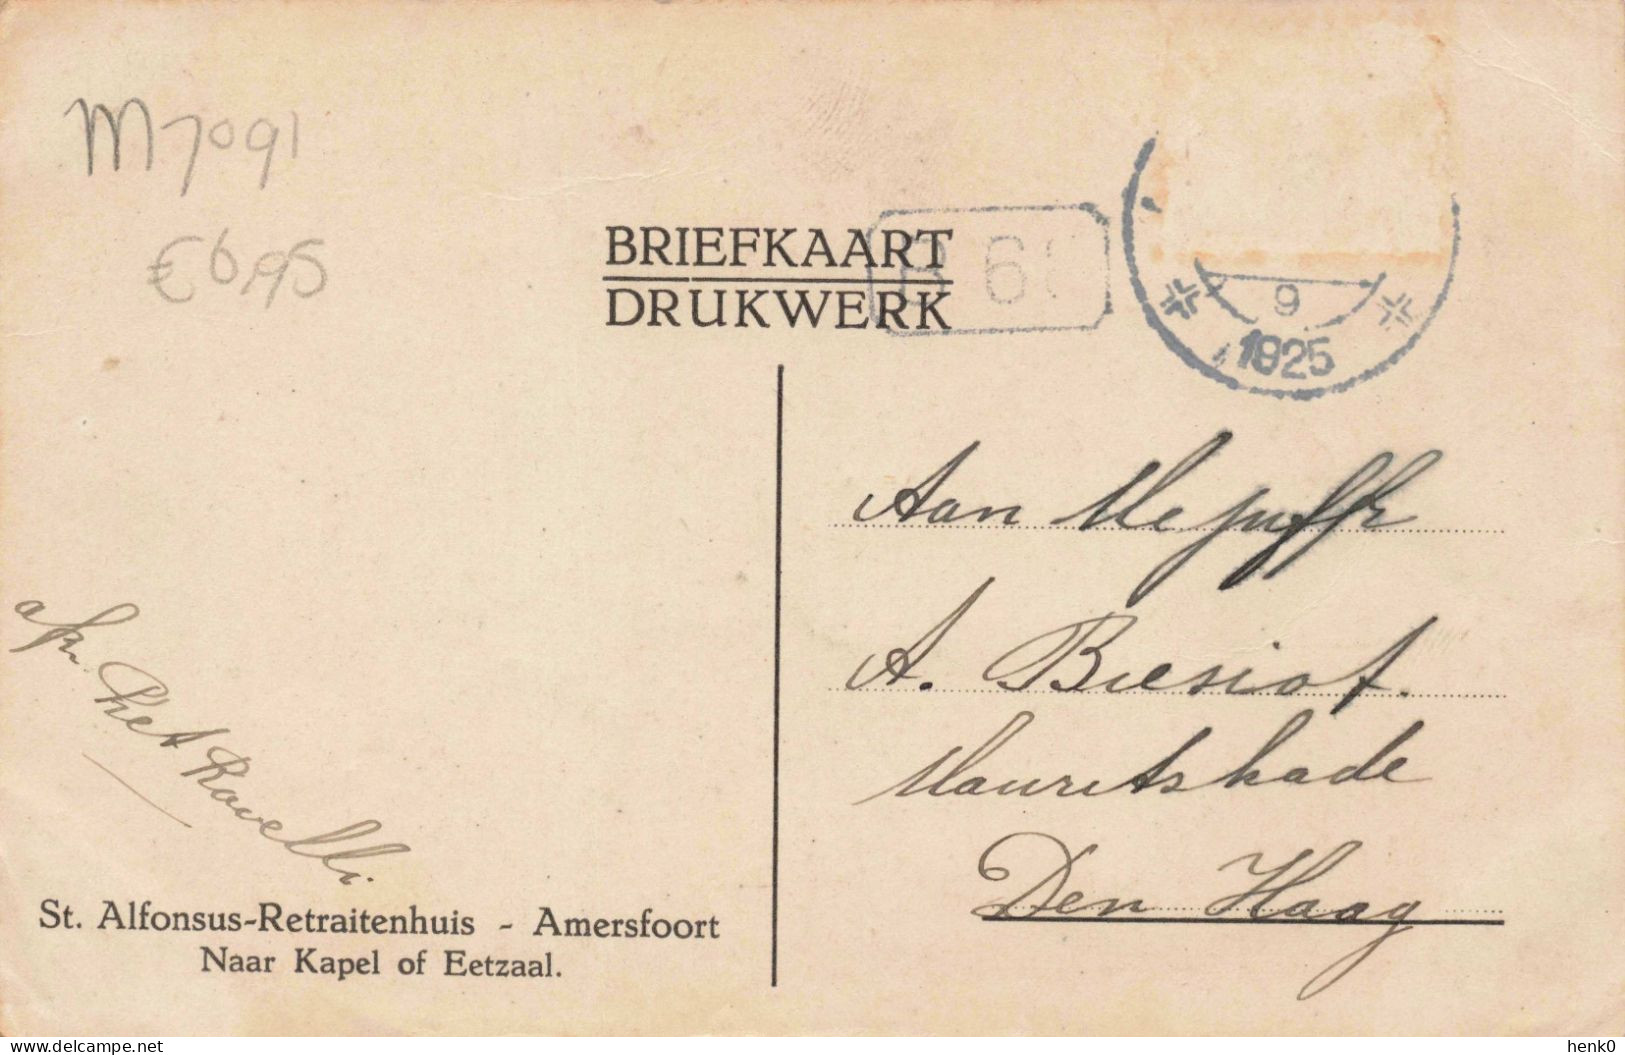 M 7091
€ 6,95
BRIEFKAART
DRUKWERK
B 6
9
1925
Aan Mejuffr
A. Biesiot.
Mauritskade
Den Haag
afz.
St. Alfonsus-Retraitenhuis - Amersfoort
Naar Kapel of Eetzaal.
www.delcampe.net
henk0